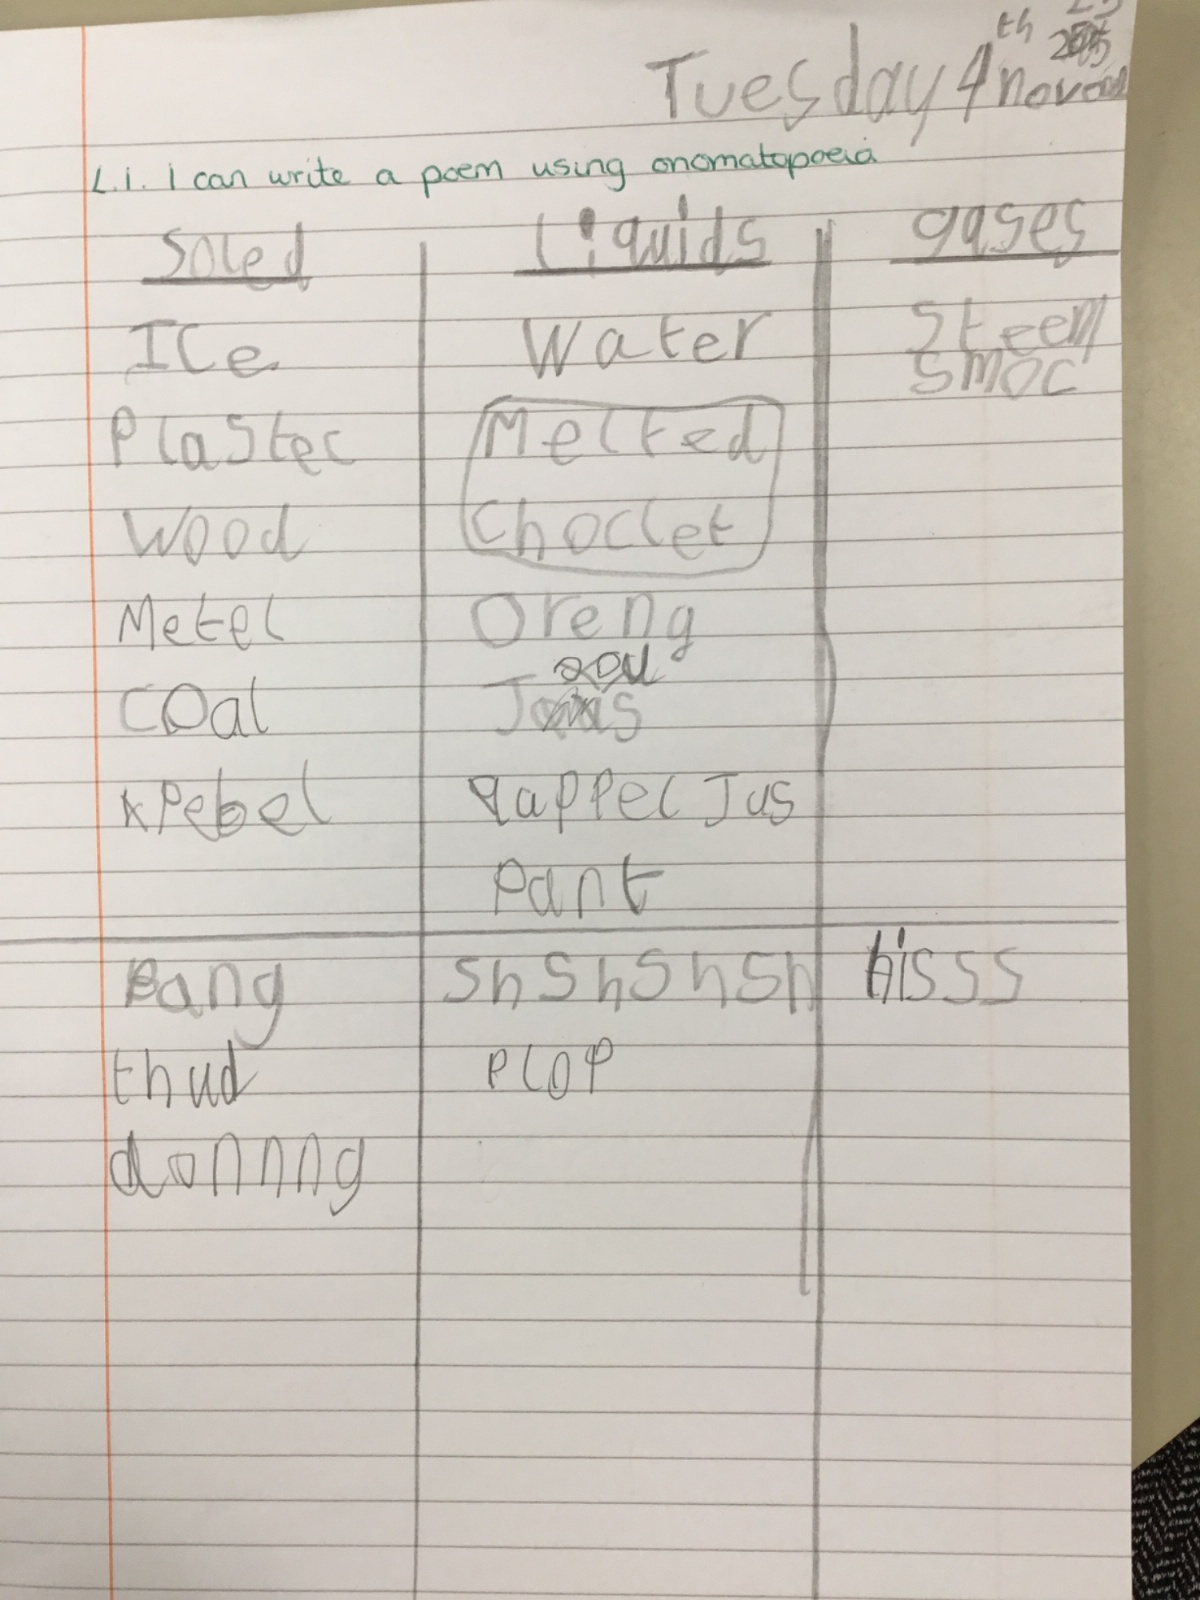 Tuesday 4th
L.I. I can write a poem using onomatopoeia
Soled Liquids gases
ICe Water Steem
Smoc
Plastec Melted
Wood Choclet
Metel Oreng
COal
Pebel appel Jus
Pant
Bang ShShShSh hisss
thud Plop
donnnng